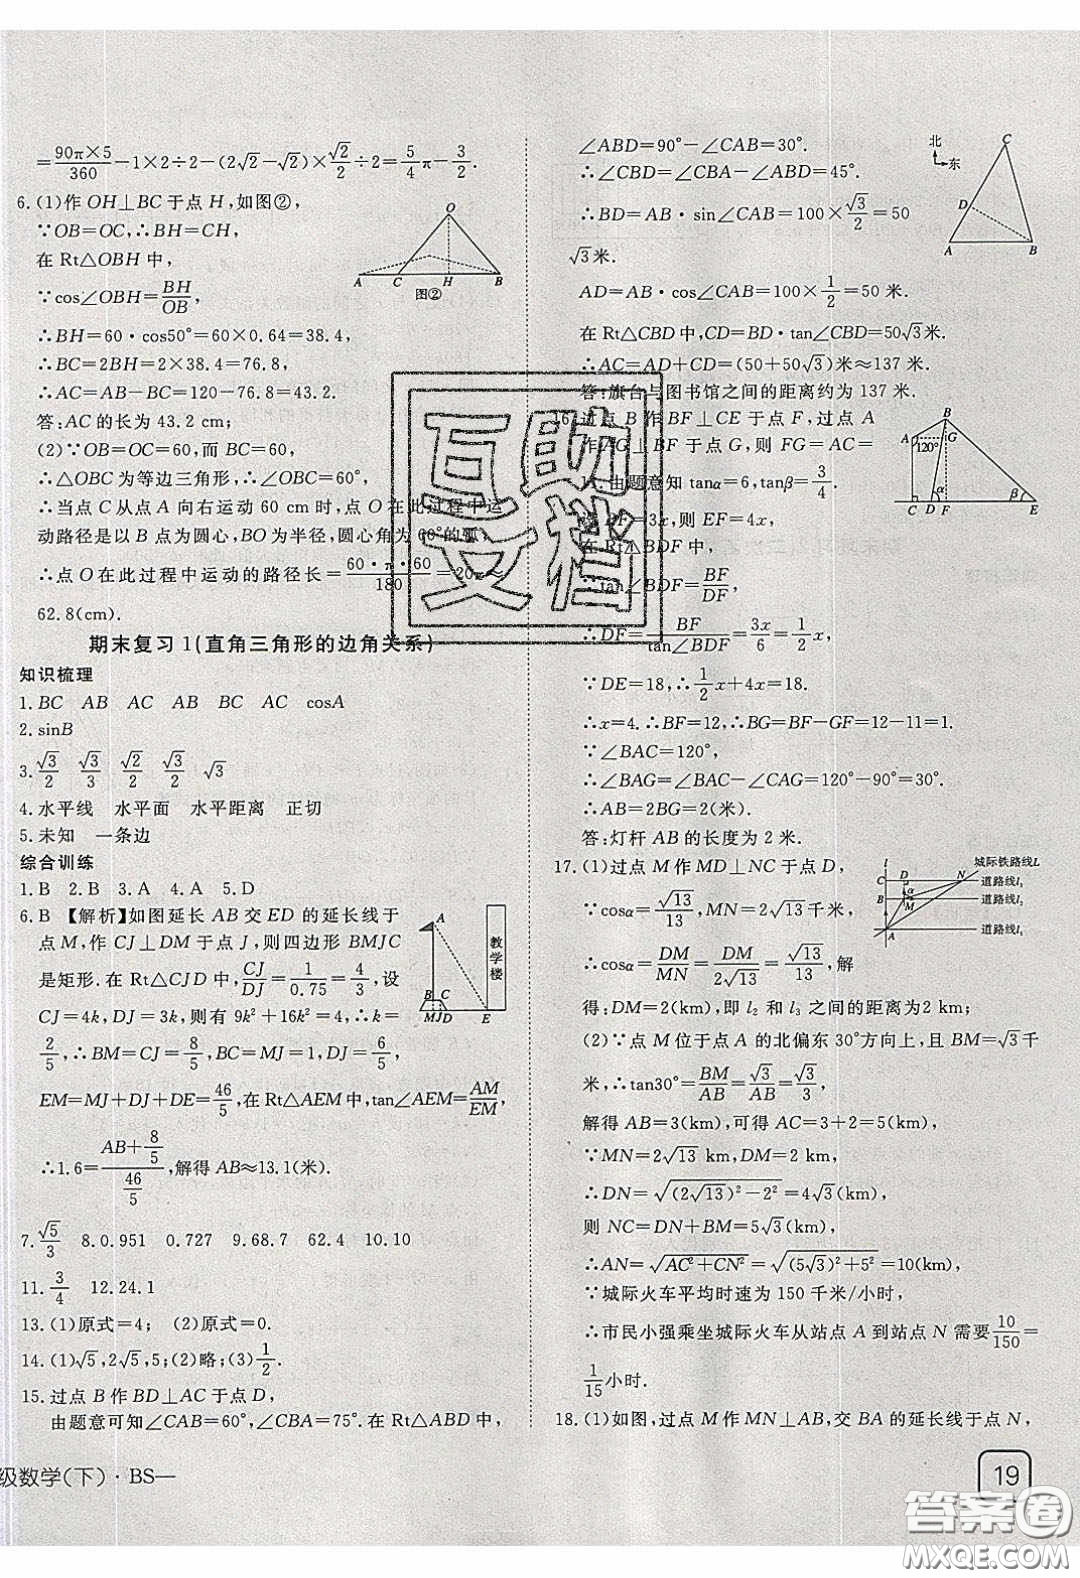 =90π×5/360−1×2÷2−(2√2−√2)×√2/2÷2=5/4π−3/2.
6.(1)作OH⊥BC于点H,如图②,
∵OB=OC,∴BH=CH,
在Rt△OBH中,
∵cos∠OBH=BH/OB,
∴BH=60·cos50°=60×0.64=38.4,
∴BC=2BH=2×38.4=76.8,
∴AC=AB−BC=120−76.8=43.2.
答:AC的长为43.2 cm;
(2)∵OB=OC=60,而BC=60,
∴△OBC为等边三角形,∠OBC=60°,
∴当点C从点A向右运动60 cm时,点O在此过程中运
动路径是以B点为圆心,BO为半径,圆心角为60°的弧,
∴点O在此过程中运动的路径长=60·π·60/180=20π≈
62.8(cm).
O
A C H B
图②
期末复习1(直角三角形的边角关系)
知识梳理
1.BC AB AC AB AC cosA
2.sinB
3.√3/2 √3/3 √2/2 √3/2 √3
4.水平线 水平面 水平距离 正切
5.未知 一条边
综合训练
1.B 2.B 3.A 4.A 5.D
6.B 【解析】如图延长AB交ED的延长线于
点M,作CJ⊥DM于点J,则四边形BMJC
是矩形.在Rt△CJD中,CJ/DJ=1/0.75=4/3,设
CJ=4k,DJ=3k,则有9k²+16k²=4,∴k=
2/5,∴BM=CJ=8/5,BC=MJ=1,DJ=6/5,
EM=MJ+DJ+DE=46/5,在Rt△AEM中,tan∠AEM=AM/EM,
∴1.6=(AB+8/5)/(46/5),解得AB≈13.1(米).
A
教学楼
B C
MJD E
7.√5/3 8.0.951 0.727 9.68.7 62.4 10.10
11.3/4 12.24.1
13.(1)原式=4; (2)原式=0.
14.(1)√5,2√5,5;(2)略;(3)1/2.
15.过点B作BD⊥AC于点D,
由题意可知∠CAB=60°,∠CBA=75°.在Rt△ABD中,
∠ABD=90°−∠CAB=30°.
∴∠CBD=∠CBA−∠ABD=45°.
∴BD=AB·sin∠CAB=100×√3/2=50
√3米.
AD=AB·cos∠CAB=100×1/2=50米.
在Rt△CBD中,CD=BD·tan∠CBD=50√3米.
∴AC=AD+CD=(50+50√3)米≈137米.
答:旗台与图书馆之间的距离约为137米.
北
东
C
D
A B
16.过点B作BF⊥CE于点F,过点A
作AG⊥BF于点G,则FG=AC=
11.由题意知tanα=6,tanβ=3/4.
设BF=3x,则EF=4x,
在Rt△BDF中,
∵tan∠BDF=BF/DF,
∴DF=BF/tan∠BDF=3x/6=1/2x,
∵DE=18,∴1/2x+4x=18.
∴x=4.∴BF=12,∴BG=BF−GF=12−11=1.
∵∠BAC=120°,
∴∠BAG=∠BAC−∠CAG=120°−90°=30°.
∴AB=2BG=2(米).
答:灯杆AB的长度为2米.
B
A 120° G
α β
C D F E
17.(1)过点M作MD⊥NC于点D,
∵cosα=√13/13,MN=2√13千米,
∴cosα=DM/MN=DM/2√13=√13/13,解
得:DM=2(km),即l₂和l₃之间的距离为2 km;
(2)∵点M位于点A的北偏东30°方向上,且BM=√3千
米,∴tan30°=BM/AB=√3/AB=√3/3,
解得AB=3(km),可得AC=3+2=5(km),
∵MN=2√13 km,DM=2 km,
∴DN=√((2√13)²−2²)=4√3(km),
则NC=DN+BM=5√3(km),
∴AN=√(AC²+CN²)=√((5√3)²+5²)=10(km),
∵城际火车平均时速为150千米/小时,
∴市民小强乘坐城际火车从站点A到站点N需要10/150=
1/15小时.
l
城际铁路线L
C D N 道路线l₃
α
B M 道路线l₂
A 道路线l₁
18.(1)如图,过点M作MN⊥AB,交BA的延长线于点N,
级数学(下)·BS—
19
互助文档
答案圈
MXQE.COM